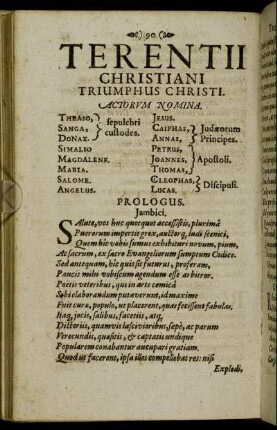 90
TERENTII
CHRISTIANI
TRIUMPHUS CHRISTI.
ACTORVM NOMINA.
THRASO, JESUS.
SANGA, sepulchri CAIPHAS, Judæorum
DONAX. custodes. ANNAS, Principes.
SIMALIO PETRUS,
MAGDALENE. JOANNES, Apostoli.
MARIA. THOMAS,
SALOME. CLEOPHAS, Discipuli.
ANGELUS. LUCAS,
PROLOGUS.
Jambici.
Salute, vos huc quotquot accessistis, plurimâ
Puerorum impertit grex, auctorq, ludi scenici,
Quem hic vobis sumus exhibituri novum, pium,
Ac sacrum, ex sacro Evangeliorum sumptum Codice.
Sed antequam, hic quis sit futurus, proferam,
Paucis mihi vobiscum agendum esse arbitror.
Poetis veteribus, qui in arte comicâ
Sibi elaborandum putaverunt, id maxime
Fuit curæ, populo, ut placerent, quas fecissent fabulas.
Itaq, jocis, salibus, facetiis, atq,
Dicteriis, quamvis lascivioribus, sæpè, ac parum
Verecundis, quæsitis, & captatis undique
Popularem conabantur aucupari gratiam.
Quod ut facerent, ipsa illos compellebat res: nisi
Explodi,